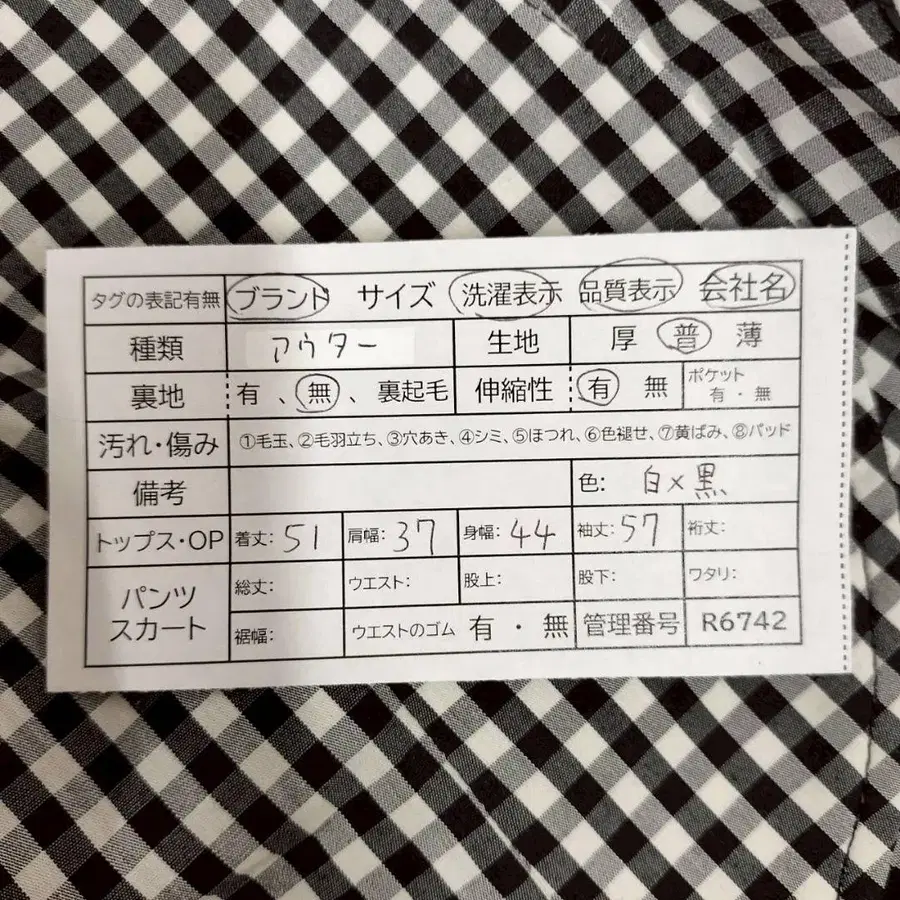 タグの表記有無 ブランド サイズ 洗濯表示 品質表示 会社名
種類 アウター 生地 厚 普 薄
裏地 有 、 無 、 裏起毛 伸縮性 有 無 ポケット 有・無
汚れ・傷み ①毛玉、②毛羽立ち、③穴あき、④シミ、⑤ほつれ、⑥色褪せ、⑦黄ばみ、⑧パッド
備考 色: 白×黒
トップス・OP 着丈: 51 肩幅: 37 身幅: 44 袖丈: 57 裄丈:
パンツ スカート 総丈: ウエスト: 股上: 股下: ワタリ:
裾幅: ウエストのゴム 有 ・ 無 管理番号 R6742